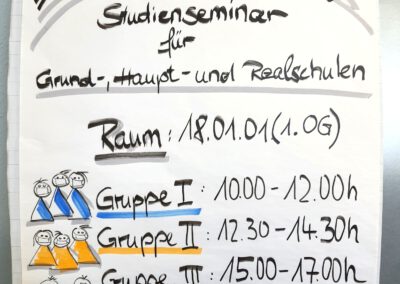 Studienseminar
für
Grund-, Haupt- und Realschulen
Raum: 18.01.01 (1.OG)
Gruppe I: 10.00-12.00h
Gruppe II: 12.30-14.30h
Gruppe III: 15.00-17.00h